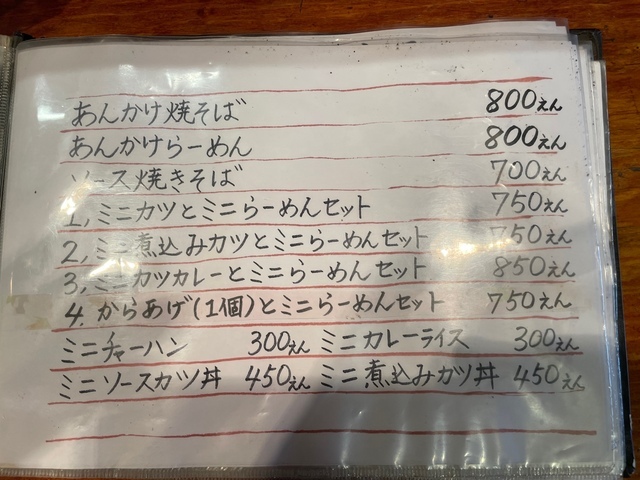 あんかけ焼そば 800えん
あんかけらーめん 800えん
ソース焼きそば 700えん
1, ミニカツとミニらーめんセット 750えん
2, ミニ煮込みカツとミニらーめんセット 750えん
3, ミニカツカレーとミニらーめんセット 850えん
4. からあげ(1個)とミニらーめんセット 750えん
ミニチャーハン 300えん ミニカレーライス 300えん
ミニソースカツ丼 450えん ミニ煮込みカツ丼 450えん